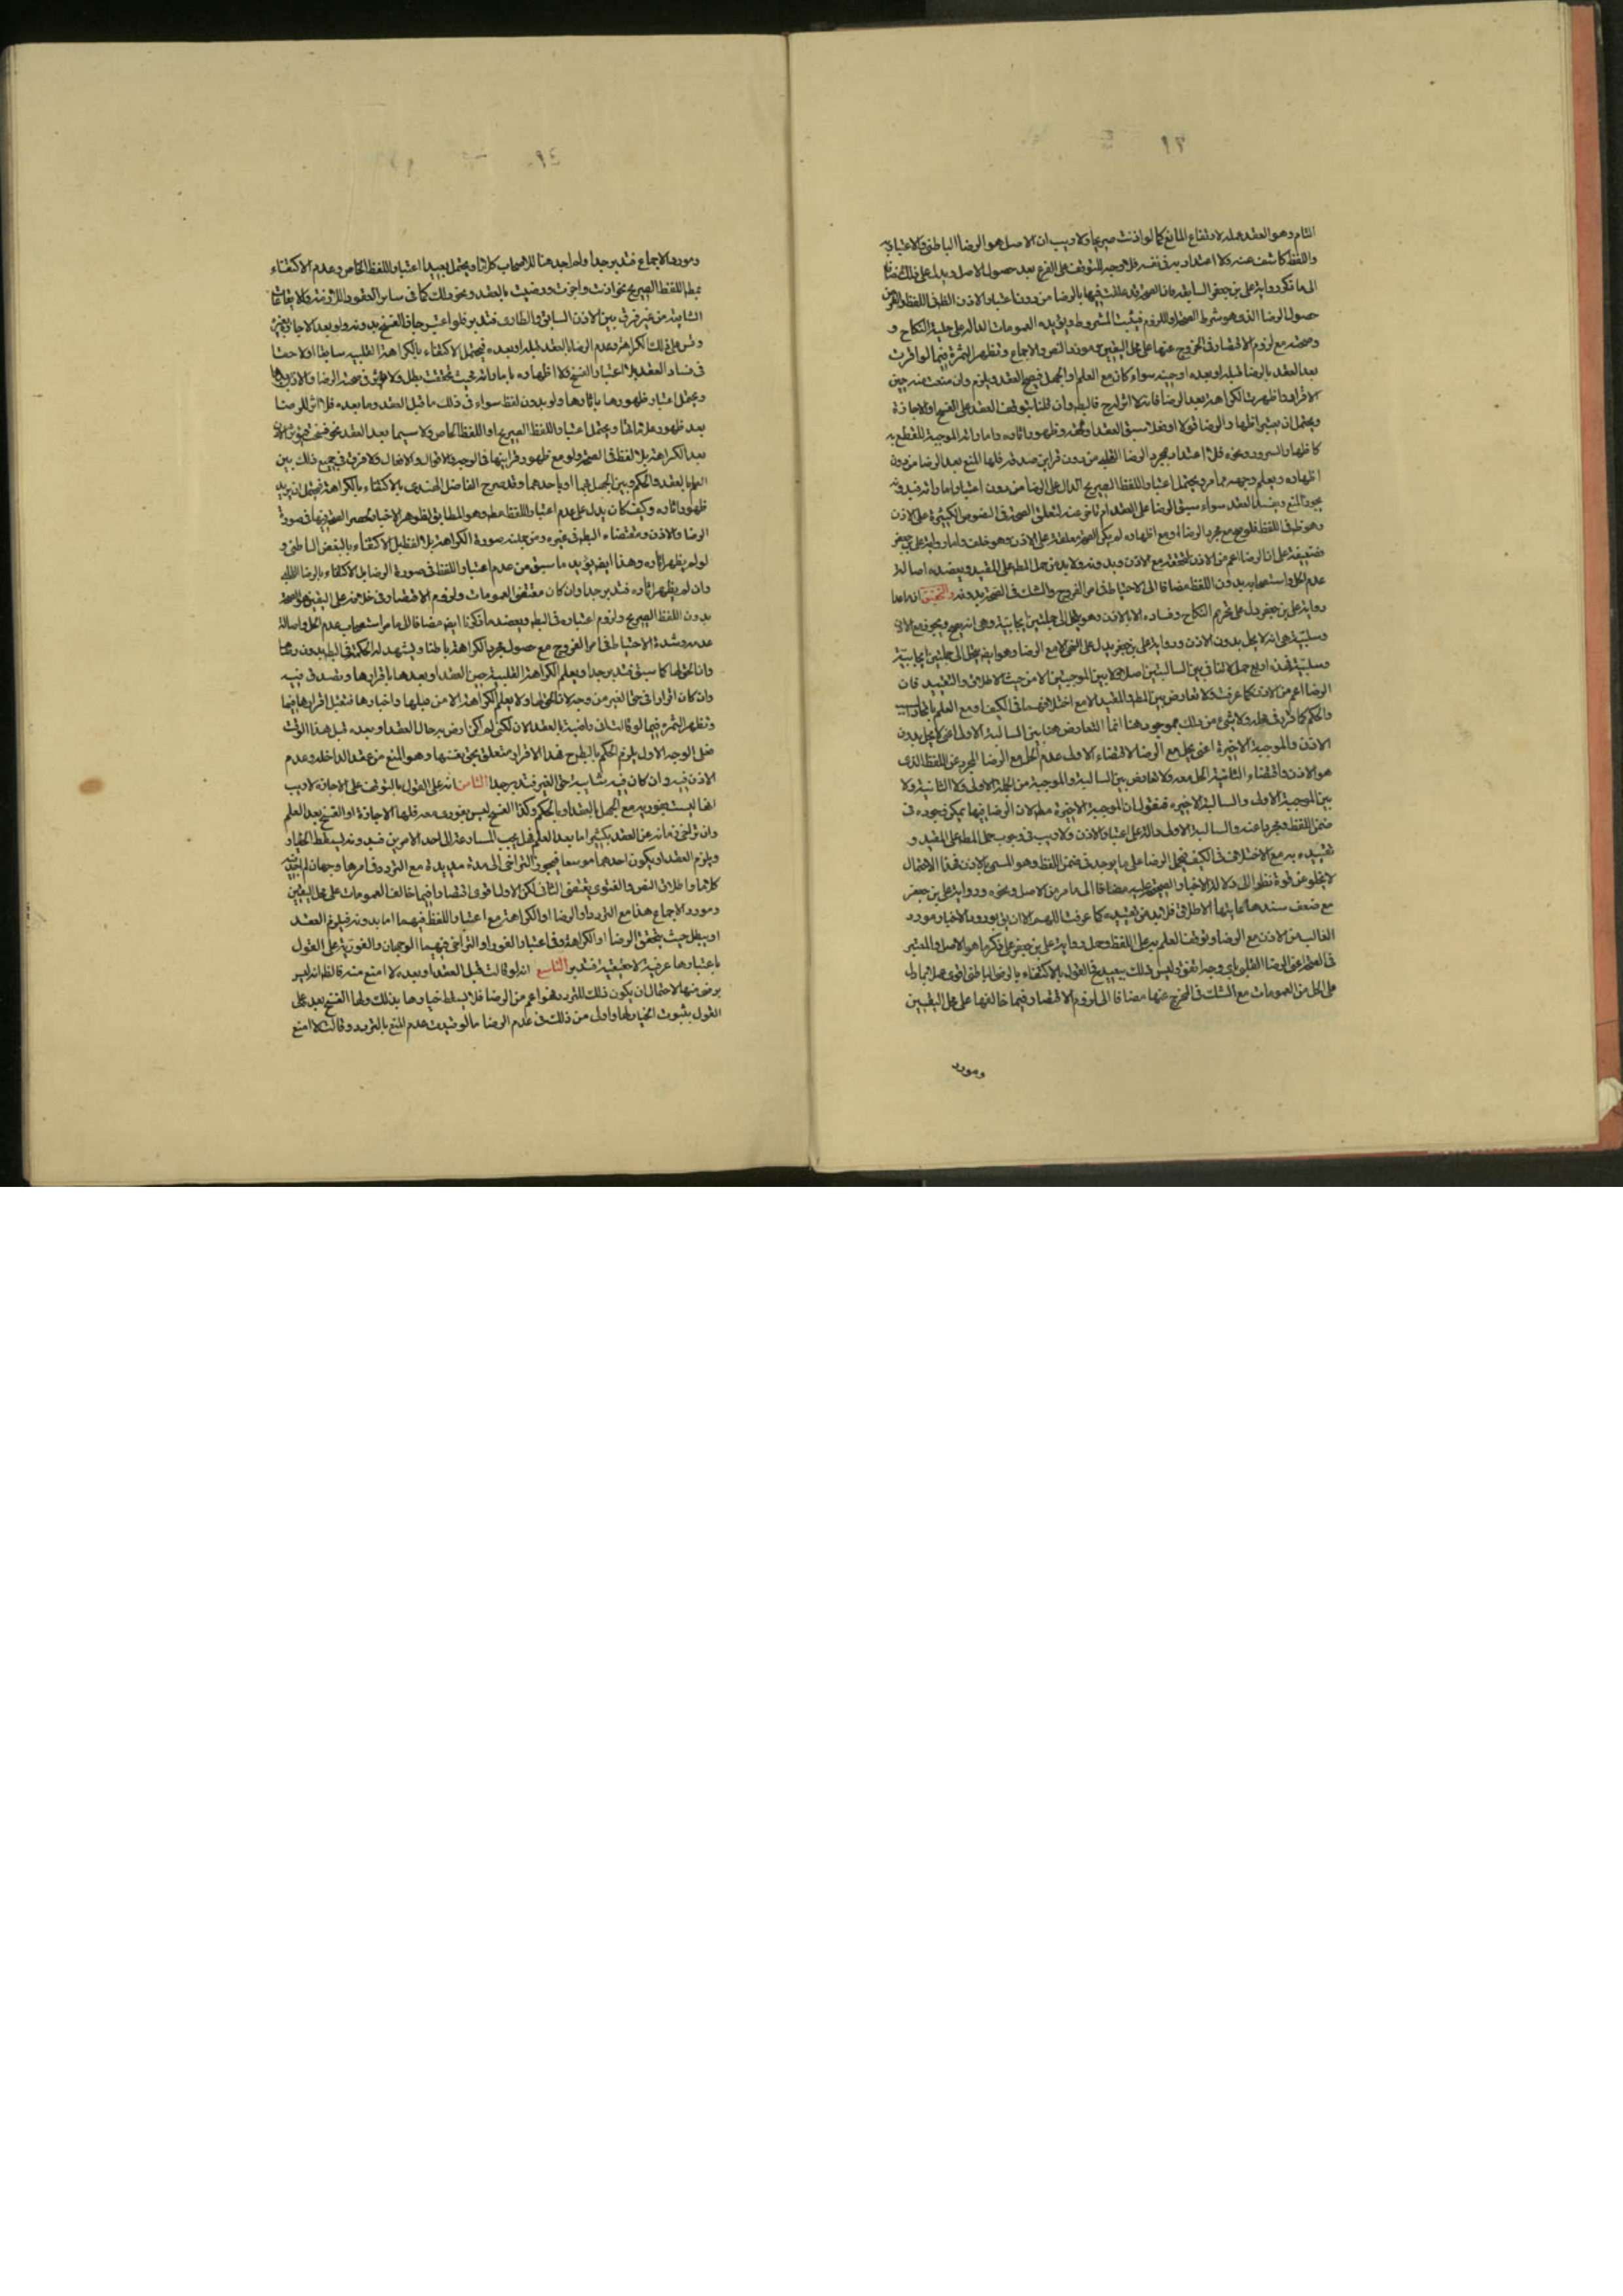 ٩٣
التام وهو العقد عمله لارتفاع المانع كما لو اذنت صريحا ولا ريب ان الاصل هو الرضا الباطنى والاعتبار به
واللفظ كاشف عنه ولا اعتداد به فى نفسه فلا وجه للتوقف على الفرع بعد حصول الاصل ويدل على ذلك مضافا
الى ما ذكر رواية على بن جعفر السابقة فان الصحة قد علقت فيها بالرضا من دون اعتبار الاذن اللفظ
حصول الرضا الذى هو شرط الصحة واللزوم فيثبت المشروط ويؤيده العمومات الدالة على حلية النكاح و
وصحته مع لزوم الاقتصار فى الخروج عنها على محل اليقين مورد النص والاجماع وتظهر الثمرة فيما لو اقرت
بعد العقد بالرضا قبله او بعده او حينه سواء كان مع العلم او الجهل فيصح العقد ويلزم وان منعت منه حين
الاقرار واظهرت الكراهة بعد الرضا فانه لا اثر له ح قاله وان قلنا بتوقف العقد على الفسخ او الاجازة
ويحتمل ان يعتبر اظهار الرضا قولا او فعلا سبق العقد او لحقه وظهور اثاره واماراته الموجبة للقطع به
كاظهار السرور ونحوه فلا اعتداد بمجرد الرضا القلبى من دون قراين صدقه فلها المنع بعد الرضا من دون
اظهاره ويعلم وجهه مما مر ويحتمل اعتبار اللفظ الصريح الدال على الرضا من دون اعتبار اماراته فبدونه
يجوز المنع ويفسد العقد سواء سبق الرضا على العقد ام تاخر عنه لتعلق الصحة فى النصوص الكثيرة على الاذن
وهو ظ فى اللفظ فلو صح مع مجرد الرضا او مع اظهاره لم يكن الصحة معلقة على الاذن وهو خلف واما رواية على بن جعفر
فضعيفة على ان الرضا اعم من الاذن لتحققه مع الاذن وبدونه ولا بد من حمل المط على المقيد ويعضده اصالة
عدم الحل واستصحابه بدون اللفظ مضافا الى الاحتياط فى امر الفروج والشك فى الصحة بدونه والتحقيق ان ما عدا
رواية على بن جعفر دل على تحريم النكاح وفساده الا بالاذن وهو ينحل الى جملتين ايجابية وهى انه يصح ويجوز مع الاذن
وسلبية هى انه لا يحل بدون الاذن ورواية على بن جعفر يدل على النفى الا مع الرضا وهو ايضا ينحل الى جملتين ايجابية
وسلبية فهذه اربع جمل لا تنافى بين السالبتين اصلا ولا بين الموجبتين الا من حيث الاطلاق والتقييد فان
الرضا اعم من الاذن كما عرفت ولا تعارض بين المط والمقيد الا مع اختلافهما فى الكيف او مع العلم باتحاد السبب
والحكم كما قرر فى محله ولا شئ من ذلك بموجود هنا انما التعارض هنا بين السالبة الاولى اعنى لا يحل بدون
الاذن والموجبة الاخيرة اعنى يحل مع الرضا لاقتضاء الاولى عدم الحل مع الرضا المجرد عن اللفظ الذى
هو الاذن واقتضاء الثانية الحل معه ولا تعارض بين السالبة والموجبة من الجملة الاولى ولا الثانية ولا
بين الموجبة الاولى والسالبة الاخيره فنقول ان الموجبة الاخيرة مط لان الرضا فيها يمكن وجوده فى
ضمن اللفظ ومجردا عنه والسالبة الاولى دالة على اعتبار الاذن ولا ريب فى وجوب حمل المط على المقيد و
تقييده به مع الاختلاف فى الكيف فيحمل الرضا على ما يوجد فى ضمن اللفظ وهو المسمى بالاذن فهذا الاحتمال
لا يخلو عن قوة نظرا الى دلالة الاخبار الصحيحة عليه مضافا الى ما مر من الاصل ونحوه ورواية على بن جعفر
مع ضعف سندها غايتها الاطلاق فلا بد من تقييده كما عرفت اللهم الا ان يق بورود الاخبار مورد
الغالب من الاذن مع الرضا وتوقف العلم به على اللفظ وحمل رواية على بن جعفر على ذكر ما هو الاصل والمعتبر
فى الصحة اعنى الرضا القلبى باى وجه اتفق وليس ذلك ببعيد فالقول بالاكتفاء بالرضا الباطنى اقوى عملا بما دل
على الحل من العمومات مع الشك فى المخرج عنها مضافا الى لزوم الاقتصار فيما خالفها على محل اليقين
ومورد
٩٤
ومورد الاجماع فتدبر جدا ولم اجد هنا للاصحاب كلاما ويحتمل بعيدا اعتبار اللفظ الخاص وعدم الاكتفاء
بمط اللفظ الصريح نحو اذنت واجزت ورضيت بالعقد ونحو ذلك كما فى ساير العقود اللازمة والايقاعات
الثابتة من غير فرق بين الاذن السابق والطارى فتدبر فلو اعتبر جاز الفسخ بدونه ولو بعد الاجازة بغيره
وقس على ذلك الكراهة وعدم الرضا بالعقد قبله او بعده فيحتمل الاكتفاء بالكراهة القلبيه سابقا او لاحقا
فى فساد العقد بلا اعتبار الفسخ ولا اظهاره باماراته فحيث تحققت بطل
ويحتمل اعتبار ظهورها باثارها ولو بدون لفظ سواء فى ذلك ما قبل العقد وما بعده فلا اثر للرضا
بعد ظهور علاماتها ويحتمل اعتبار اللفظ الصريح او اللفظ الخاص ولا سيما بعد العقد نحو فسخت
بعد الكراهة بلا لفظ فى الصحة ولو مع ظهور قرائنها فى الوجه والاقوال والافعال ولا فرق فى جميع ذلك بين
العلم بالعقد والحكم وبين الجهل بهما او باحدهما وقد صرح الفاضل الهندى بالاكتفاء بالكراهة فيحتمل ان يريد
ظهور اثاره وكيف كان يدل على عدم اعتبار اللفظ مط وهو المطابق لظواهر الاخبار لحصر الصحة فيها فى صورة
الرضا والاذن ومقتضاه البط فى غيره ومن جملته صورة الكراهة بلا لفظ بل الاكتفاء بالبغض الباطنى و
لو لم يظهر اثاره وهذا ايضا يؤيد ما سبق من عدم اعتبار اللفظ فى صورة الرضا بل الاكتفاء بالرضا القلبى
وان لم يظهر اثاره فتدبر جدا وان كان مقتضى العمومات ولزوم الاقتصار فى خلافه على اليقين هو الصحة
بدون اللفظ الصريح ولزوم اعتباره فى البط ويعضد ما ذكرنا ايضا مضافا الى ما مر استصحاب عدم الحل واصالة
عدمه وشدة الاحتياط فى امر الفروج مع حصول مجرد الكراهة باطنا ويشهد له الحكمة فى البط بدون رضا
وان الحق لها كما سبق فتدبر جدا ويعلم الكراهة القلبية حين العقد او بعدها باقرارها وتصدق فيه
وان كان اقرارا فى حق الغير من وجه لان الحق لها ولا يعلم الكراهة الا من قبلها واخبارها فتقبل اقرارها فيها
وتظهر الثمره فيما لو قالت انى راضية بالعقد الان لكنى لم اكن ارض به حال العقد او بعده قبل هذا الوقت
فعلى الوجه الاول يلزم الحكم بالبط ح فهذا الاقرار متعلق بحق نفسها وهو المنع من عقد الداخله وعدم
الاذن فيه وان كان فيه شائبة حق الغير فتدبر جدا الثامن انه على القول بالتوقف على الاجازة لا ريب
انها ليست بفورية مع الجهل بالعقد او بالحكم وكذا الفسخ ليس بفورى معه فلها الاجازة او الفسخ بعد العلم
وان تراخى زمانه عن العقد بكثير اما بعد العلم فهل يجب المسارعة الى احد الامرين فبدونه يسقط الخيار
ويلزم العقد او يكون احدهما موسعا فيجوز التراخى الى مدة مديدة مع التردد فى امرها وجهان لم اجد فيه
كلاما واطلاق النص والفتوى يقتضى الثانى لكن الاول اقوى اقتصارا فيما خالف العمومات على محل اليقين
ومورد الاجماع هذا مع التردد اما الرضا او الكراهة مع اعتبار اللفظ فيهما اما بدونه فيلزم العقد
او يبطل حيث يتحقق الرضا او الكراهة وفى اعتبار الفور او التراخى فيهما الوجهان والفورية على القول
باعتبارها عرفية لا حقيقية فتدبر التاسع انه لو قالت قبل العقد او بعده لا امنع منه فالظ انه ليس
برضى منها لاحتمال ان يكون ذلك للتردد وهو اعم من الرضا فلا يسقط خيارها بذلك ولها الفسخ بعد على
القول بثبوت الخيار لها واولى من ذلك فى عدم الرضا ما لو قيدت عدم المنع بالتردد وقالت لا امنع